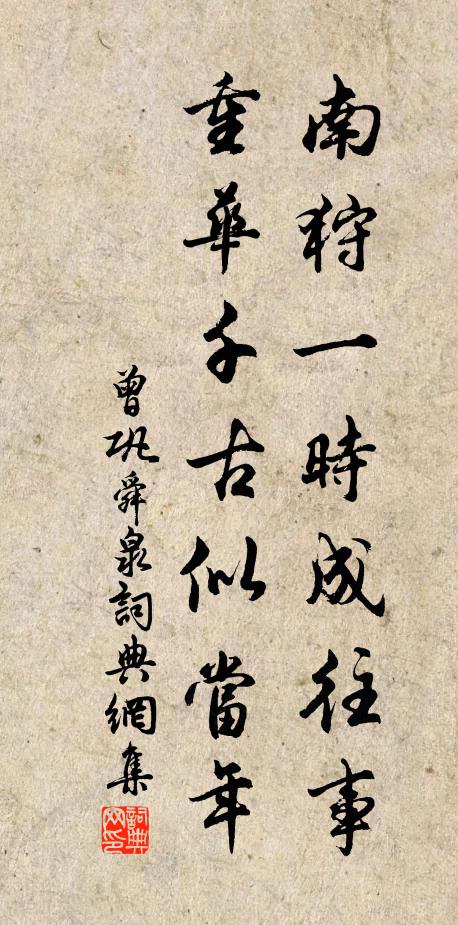 南狩一時成往事
重華千古似當年
曾巩舜泉詞典網集
詞典网印